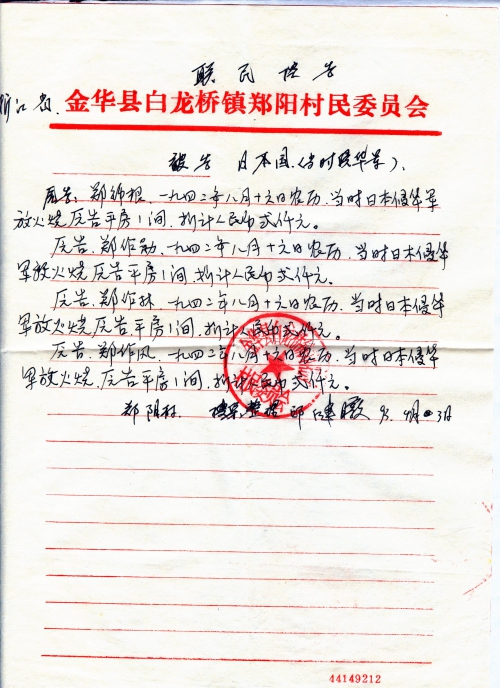 联民控告
浙江省 金华县白龙桥镇郑阳村民委员会
被告 日本国(当时侵华军)、
原告、郑锦根、一九四二年八月十六日农历、当时日本侵华军
放火烧原告平房1间、折计人民币贰仟元。
原告、郑作勋、一九四二年八月十六日农历、当时日本侵华
军放火烧原告平房1间、折计人民币贰仟元。
原告、郑作林、一九四二年八月十六日农历、当时日本侵华
军放火烧原告平房1间、折计人民币贰仟元。
原告、郑作风、一九四二年八月十六日农历、当时日本侵华
军放火烧、原告平房1间、折计人民币贰仟元。
郑阳村
44149212